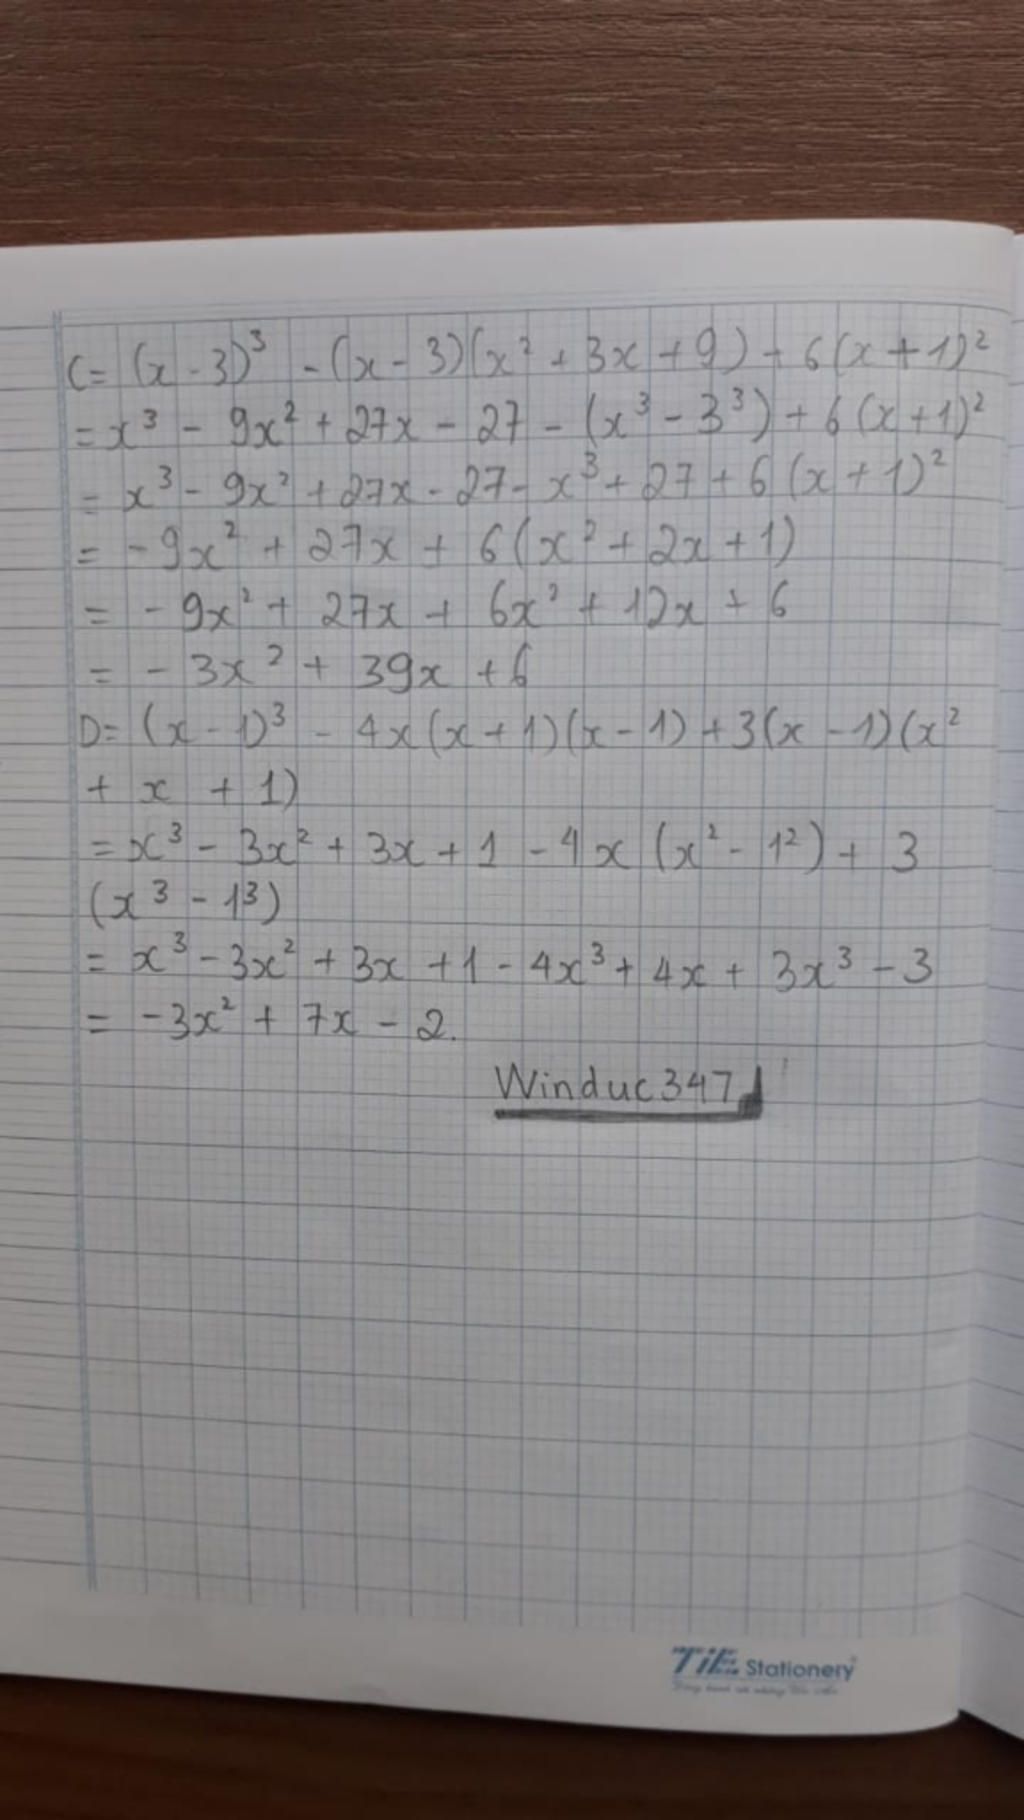 C= (x - 3)³ - (x - 3)(x² + 3x + 9) + 6(x + 1)²
= x³ - 9x² + 27x - 27 - (x³ - 3³) + 6(x+1)²
= x³ - 9x² + 27x - 27 - x³ + 27 + 6(x+1)²
= -9x² + 27x + 6(x² + 2x + 1)
= -9x² + 27x + 6x² + 12x + 6
= -3x² + 39x + 6
D= (x - 1)³ - 4x(x+1)(x-1) + 3(x-1)(x²
+ x + 1)
= x³ - 3x² + 3x + 1 - 4x (x² - 1²) + 3
(x³ - 1³)
= x³ - 3x² + 3x + 1 - 4x³ + 4x + 3x³ - 3
= -3x² + 7x - 2.
Winduc347
TiE Stationery